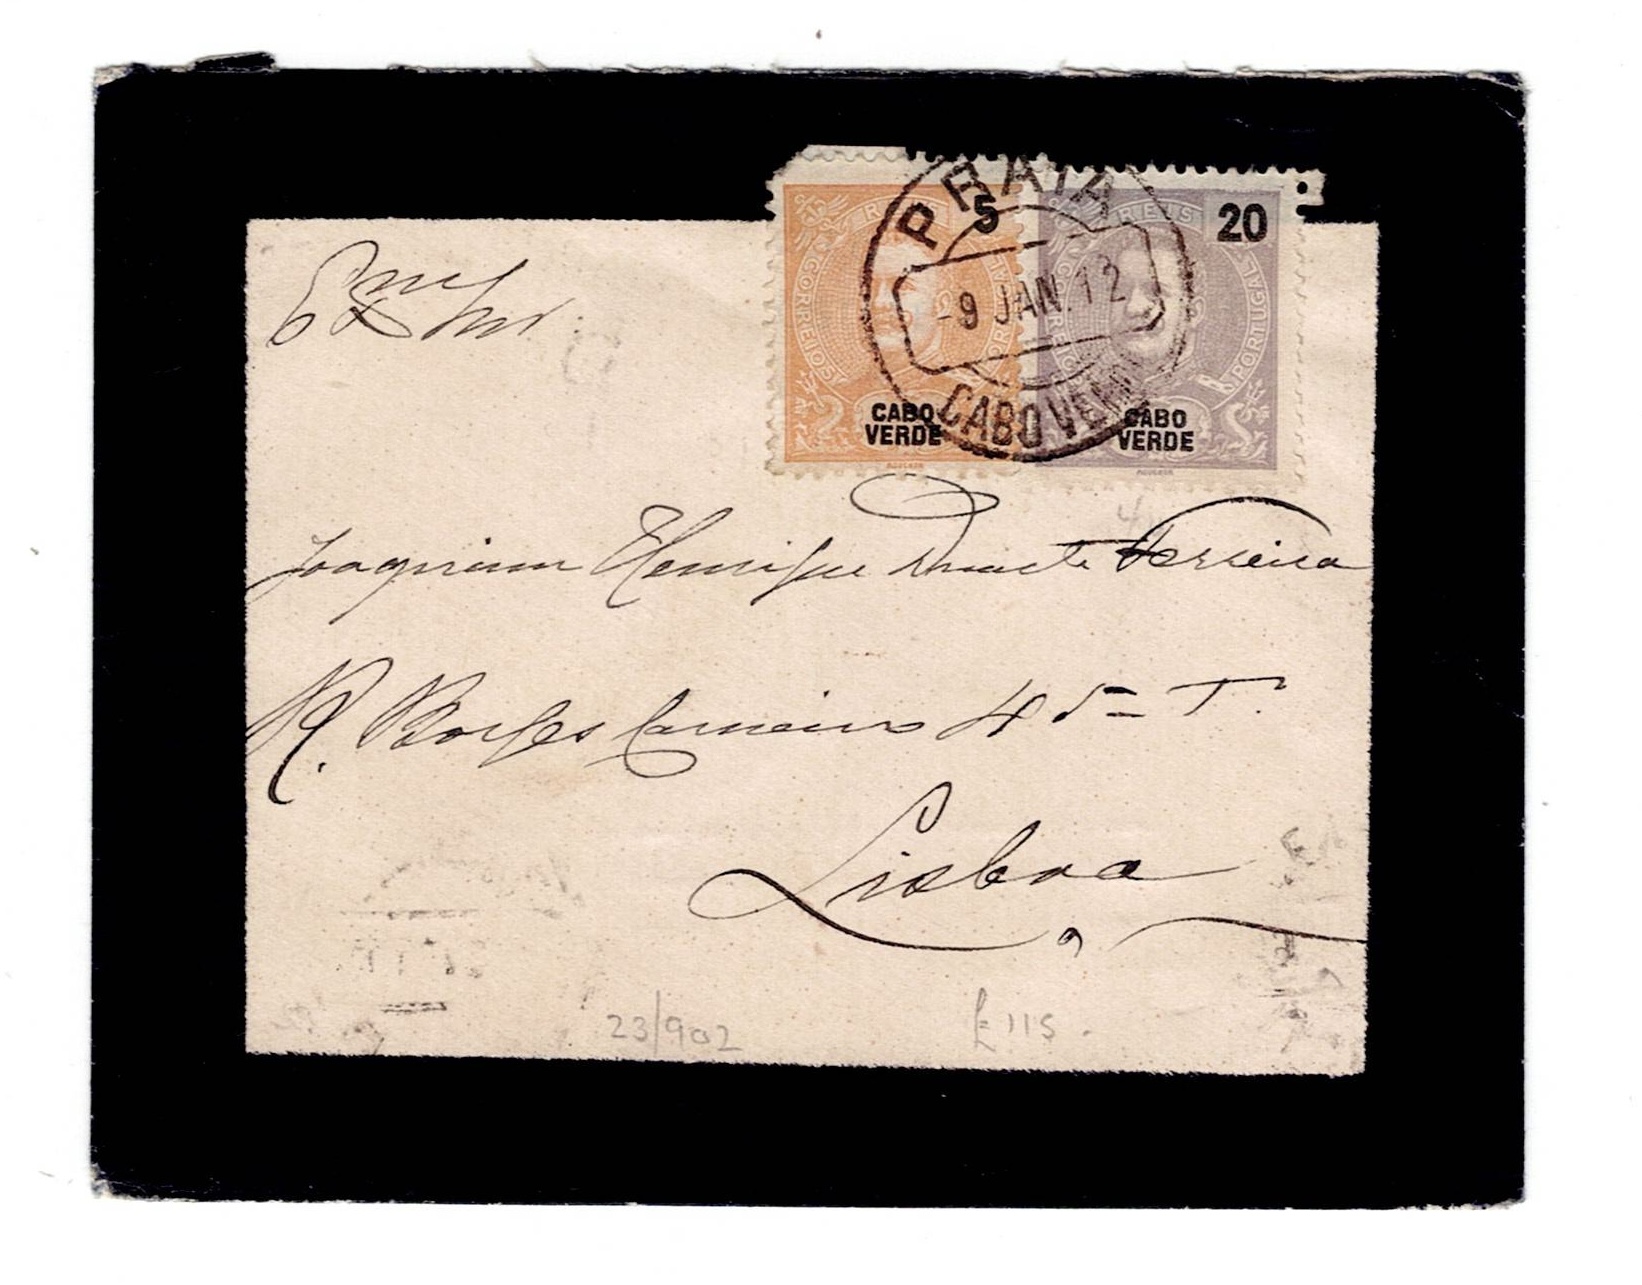 PRAIA
REIS 5 REIS 20
CORREIOS PORTUGAL
-9 JAN. 12
CABO VERDE
CABO VERDE
CABO VERDE
Exmo Snr.
Joaquim Henrique Duarte Ferreira
R. Borges Carneiro 4
Lisboa
23/902 £115.